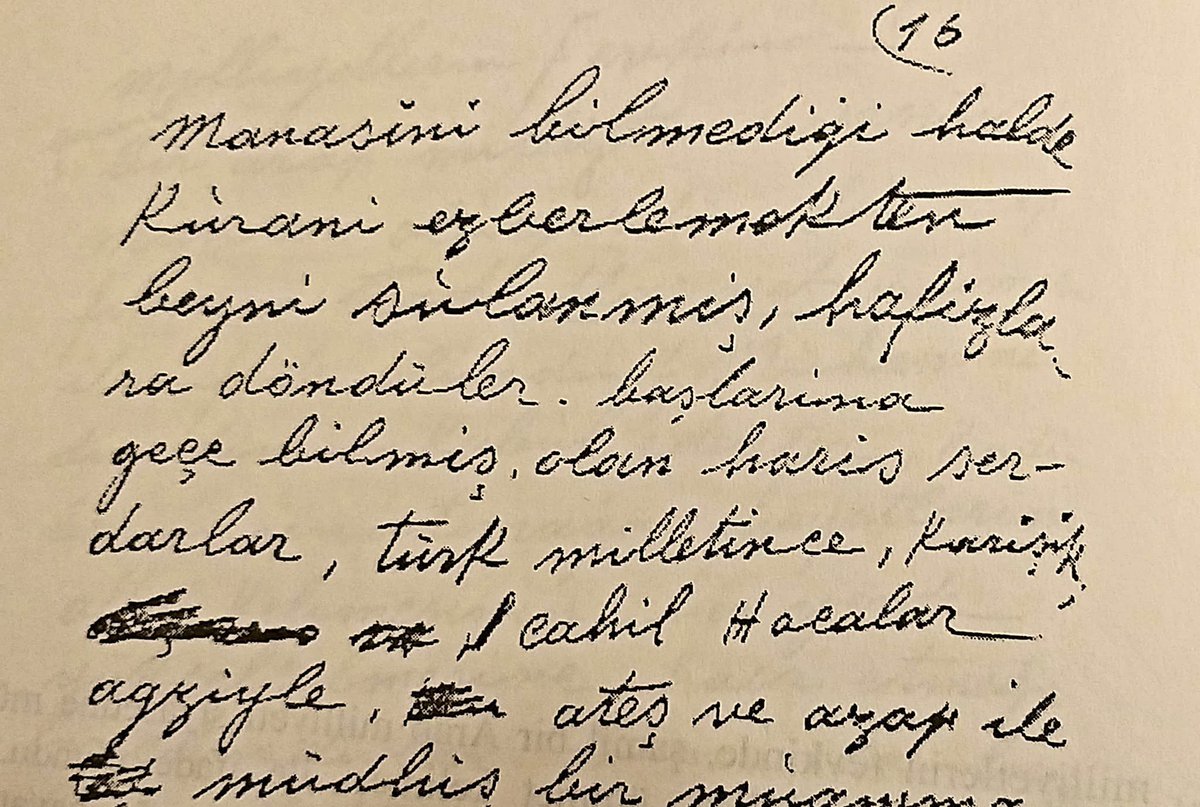 16
manasini bilmedigi halde
Kürani ezberlemekten
beyni sülanmiş, hafizla-
ra döndüler. başlarina
geçe bilmiş, olan haris ser-
darlar, türk milletince, Karişik,
cahil Hocalar
agziyle, ateş ve azap ile
müdhiş bir muamma